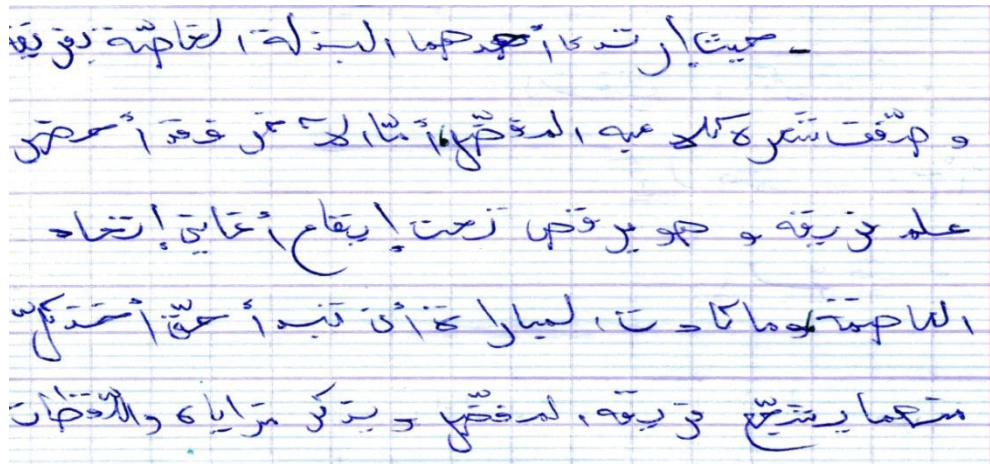 - حيث إرتدى أحدهما البذلة الخاصّة بفريقه
و صفّف شعره كلاعبه المفضّل، أمّا الآخر فقد أحضر
علم فريقه و هو يرقص تحت إيقاع أغاني إتحاد
العاصمة، وما كادت المباراة أن تبدأ حتّى أخذ كلّ
منهما يشجّع فريقه المفضّل و يذكر مزاياه واللّقطات